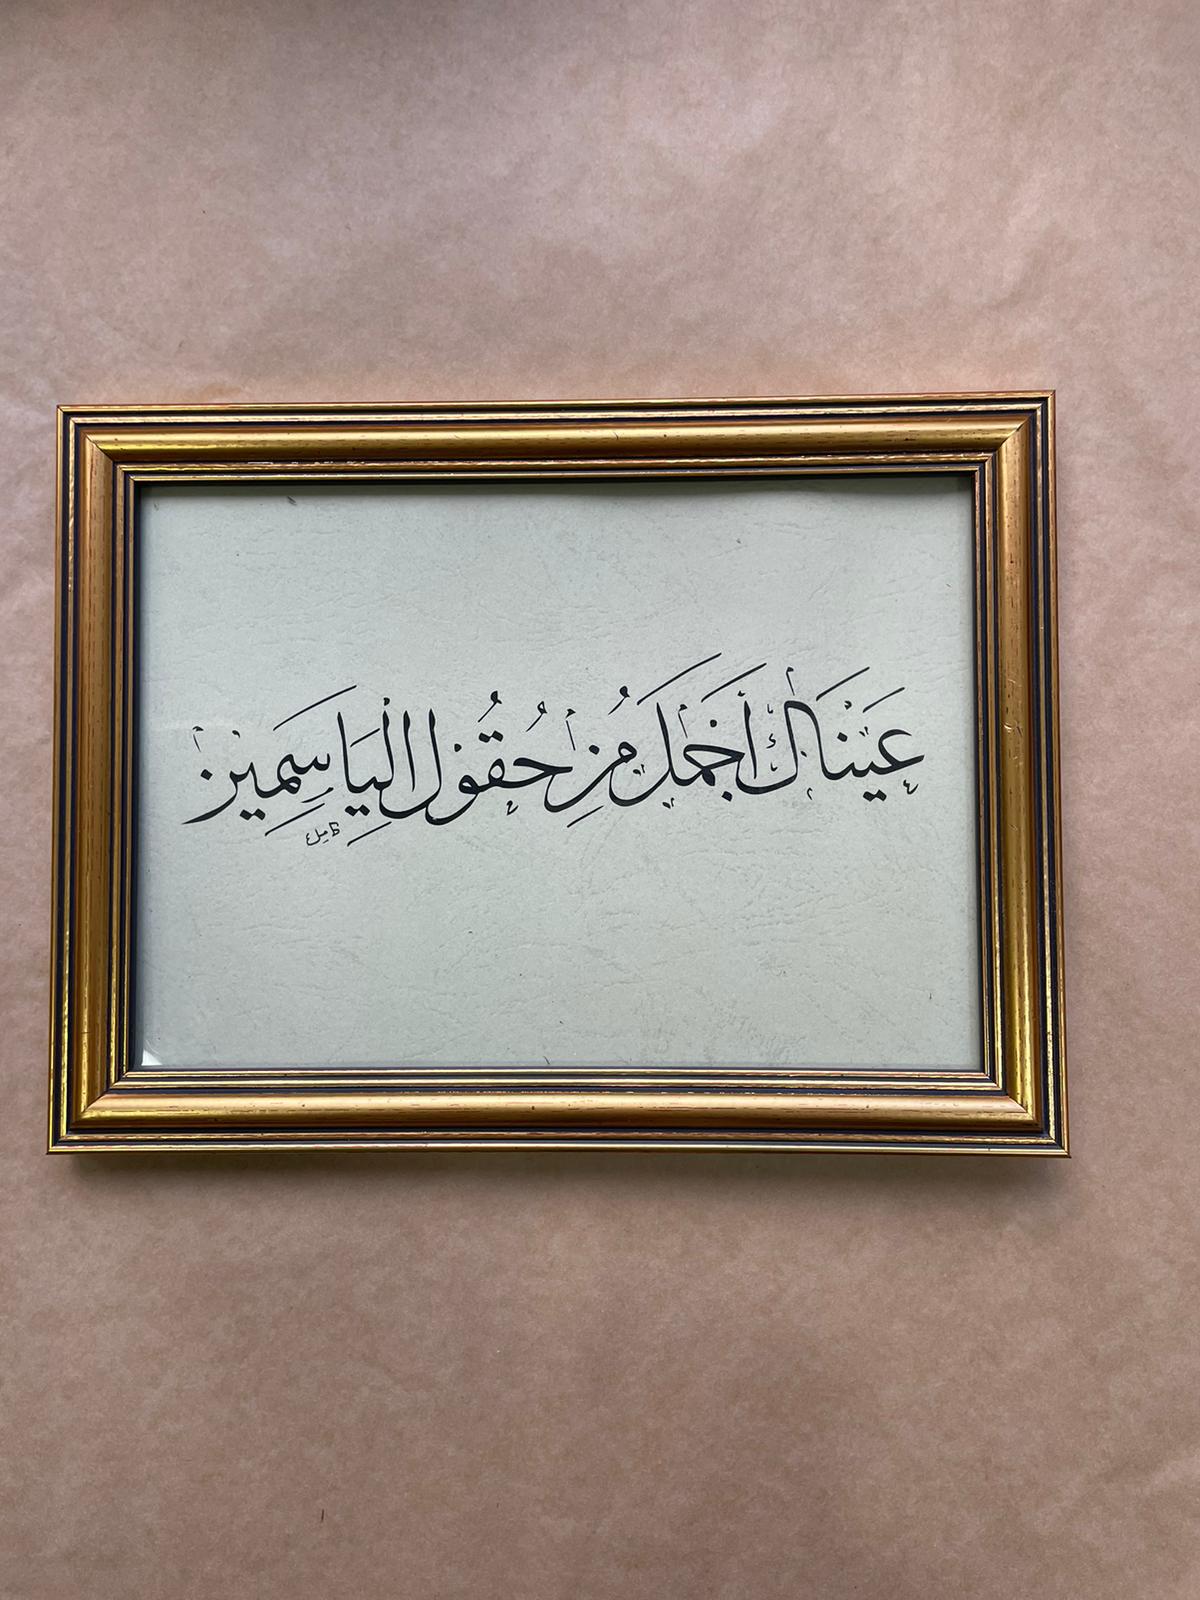 عَيْنَاكِ أَجْمَلُ مِنْ حُقُولِ الْيَاسَمِينْ
كامل